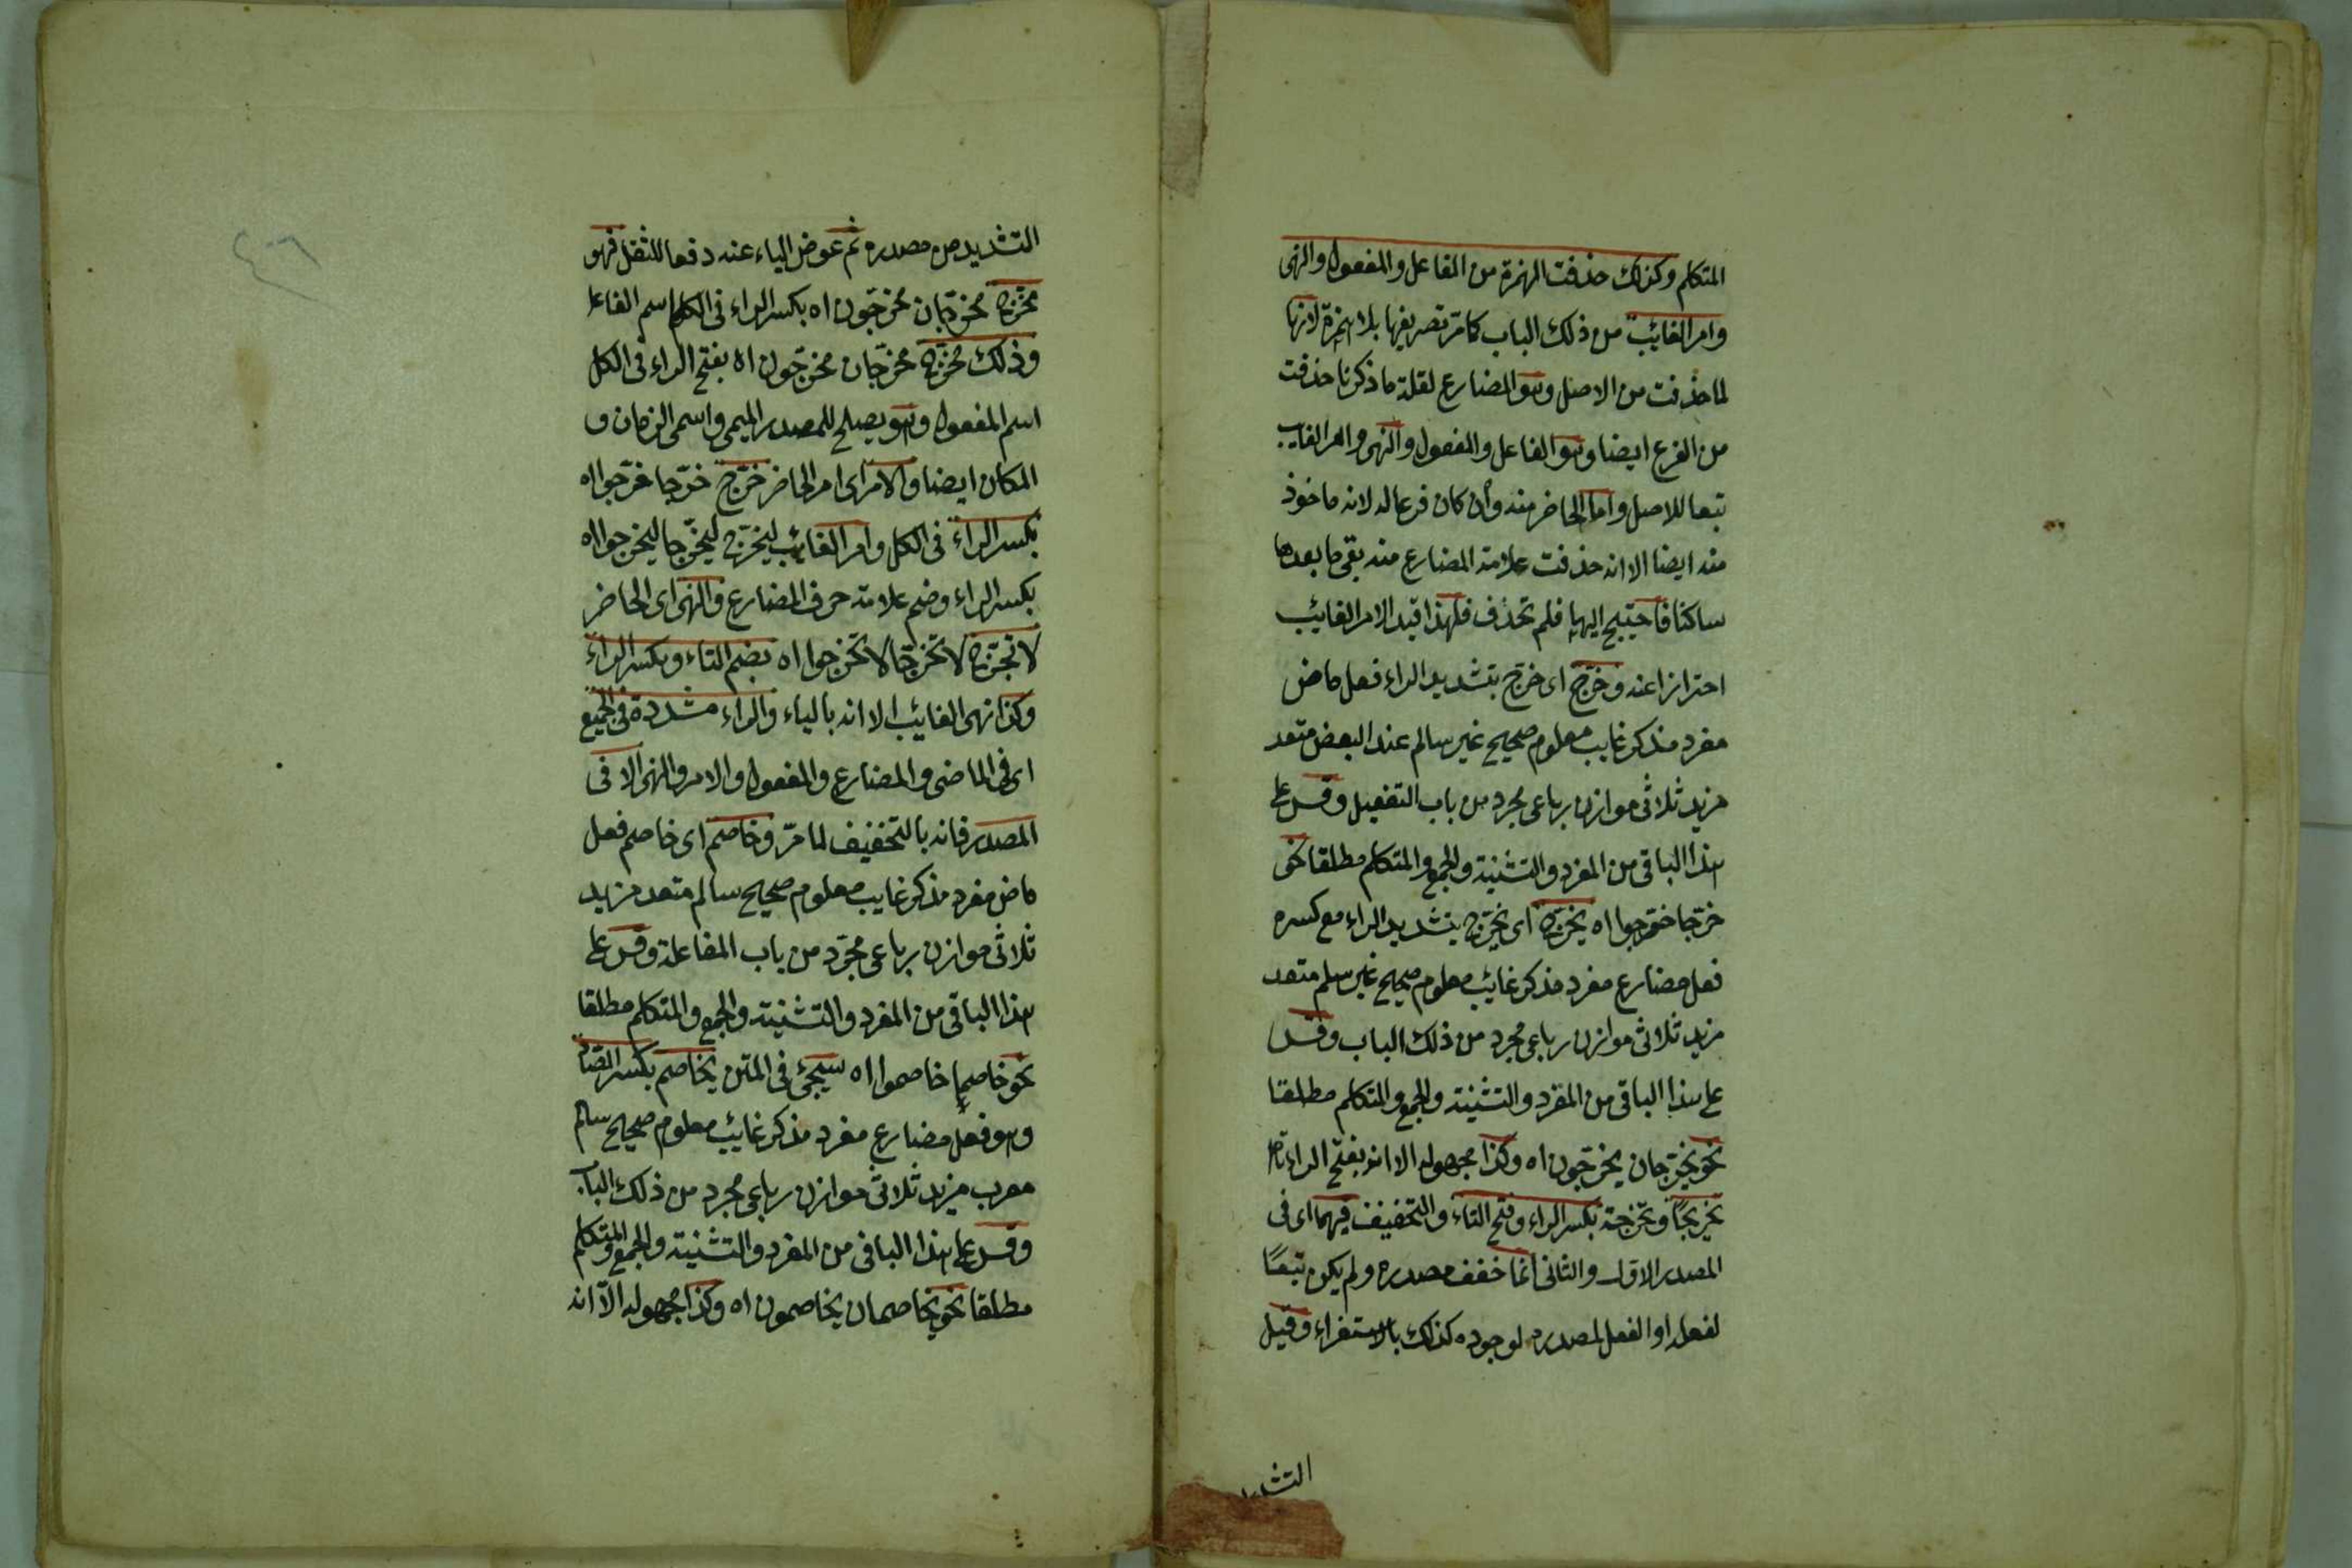 المتكلم وكذلك حذفت الهمزة من الفاعل والمفعول والنهى
وامر الغائب من ذلك الباب كما مر تصريفها بلا همزة لانها
لما حذفت من الاصل وهو المضارع لقلة ما ذكرنا حذفت
من الفرع ايضا وهو الفاعل والمفعول والنهى وامر الغايب
تبعا للاصل واما الحاضر منه وان كان فرعا له لانه ماخوذ
منه ايضا الا انه حذفت علامة المضارع منه بقى ما بعدها
ساكنا فاحتيج اليها فلم تحذف فلهذا قيد الامر الغائب
احترازا عنه وخرّج اى خرّج بتشديد الراء فعل ماض
مفرد مذكر غايب معلوم صحيح غير سالم عند البعض متعد
مزيد ثلاثى موازن رباعى مجرد من باب التفعيل وقس على
هذا الباقى من المفرد والتثنية والجمع والمتكلم مطلقا نحو
خرّجا خرّجوا اه يخرّج اى يخرّج بتشديد الراء مع كسره
فعل مضارع مفرد مذكر غائب معلوم صحيح غير سالم متعد
مزيد ثلاثى موازن رباعى مجرد من ذلك الباب وقس
على هذا الباقى من المفرد والتثنية والجمع والمتكلم مطلقا
نحو يخرّجان يخرّجون اه وكذا مجهوله الا انه بفتح الراء
تخريجًا وتخرجة بكسر الراء وفتح التاء والتخفيف فيهما اى فى
المصدر الاول والثانى انما خفف مصدره ولم يكن تبعًا
لفعله او الفعل لمصدره لوجوده كذلك بالاستقراء وقيل
التشديد
التشديد من مصدره ثم عوض الياء عنه دفعا للثقل فهو
مخرّج مخرّجان مخرّجون اه بكسر الراء فى الكل اسم الفاعل
وذلك مخرّج مخرّجان مخرّجون اه بفتح الراء فى الكل
اسم المفعول وهو يصلح للمصدر الميمى واسمى الزمان و
المكان ايضا والامر اى امر الحاضر خرّج خرّجا خرّجوا اه
بكسر الراء فى الكل وامر الغايب ليخرّج ليخرّجا ليخرّجوا اه
بكسر الراء وضم علامة حرف المضارع والنهى اى الحاضر
لا تخرّج لا تخرّجا لا تخرّجوا اه بضم التاء وبكسر الراء
وكذا نهى الغائب الا انه بالياء والراء مشددة فى الجميع
اى فى الماضى والمضارع والمفعول والامر والنهى الا فى
المصدر فانه بالتخفيف لما مرّ وخاصم اى خاصم فعل
ماض مفرد مذكر غايب معلوم صحيح سالم متعد مزيد
ثلاثى موازن رباعى مجرّد من باب المفاعلة وقس على
هذا الباقى من المفرد والتثنية والجمع والمتكلم مطلقا
نحو خاصما خاصموا اه سيجئ فى المتن يخاصم بكسر الصاد
وهو فعل مضارع مفرد مذكر غائب معلوم صحيح سالم
معرب مزيد ثلاثى موازن رباعى مجرد من ذلك الباب
وقس على هذا الباقى من المفرد والتثنية والجمع والمتكلم
مطلقا نحو يخاصمان يخاصمون اه وكذا مجهوله الاّ انه